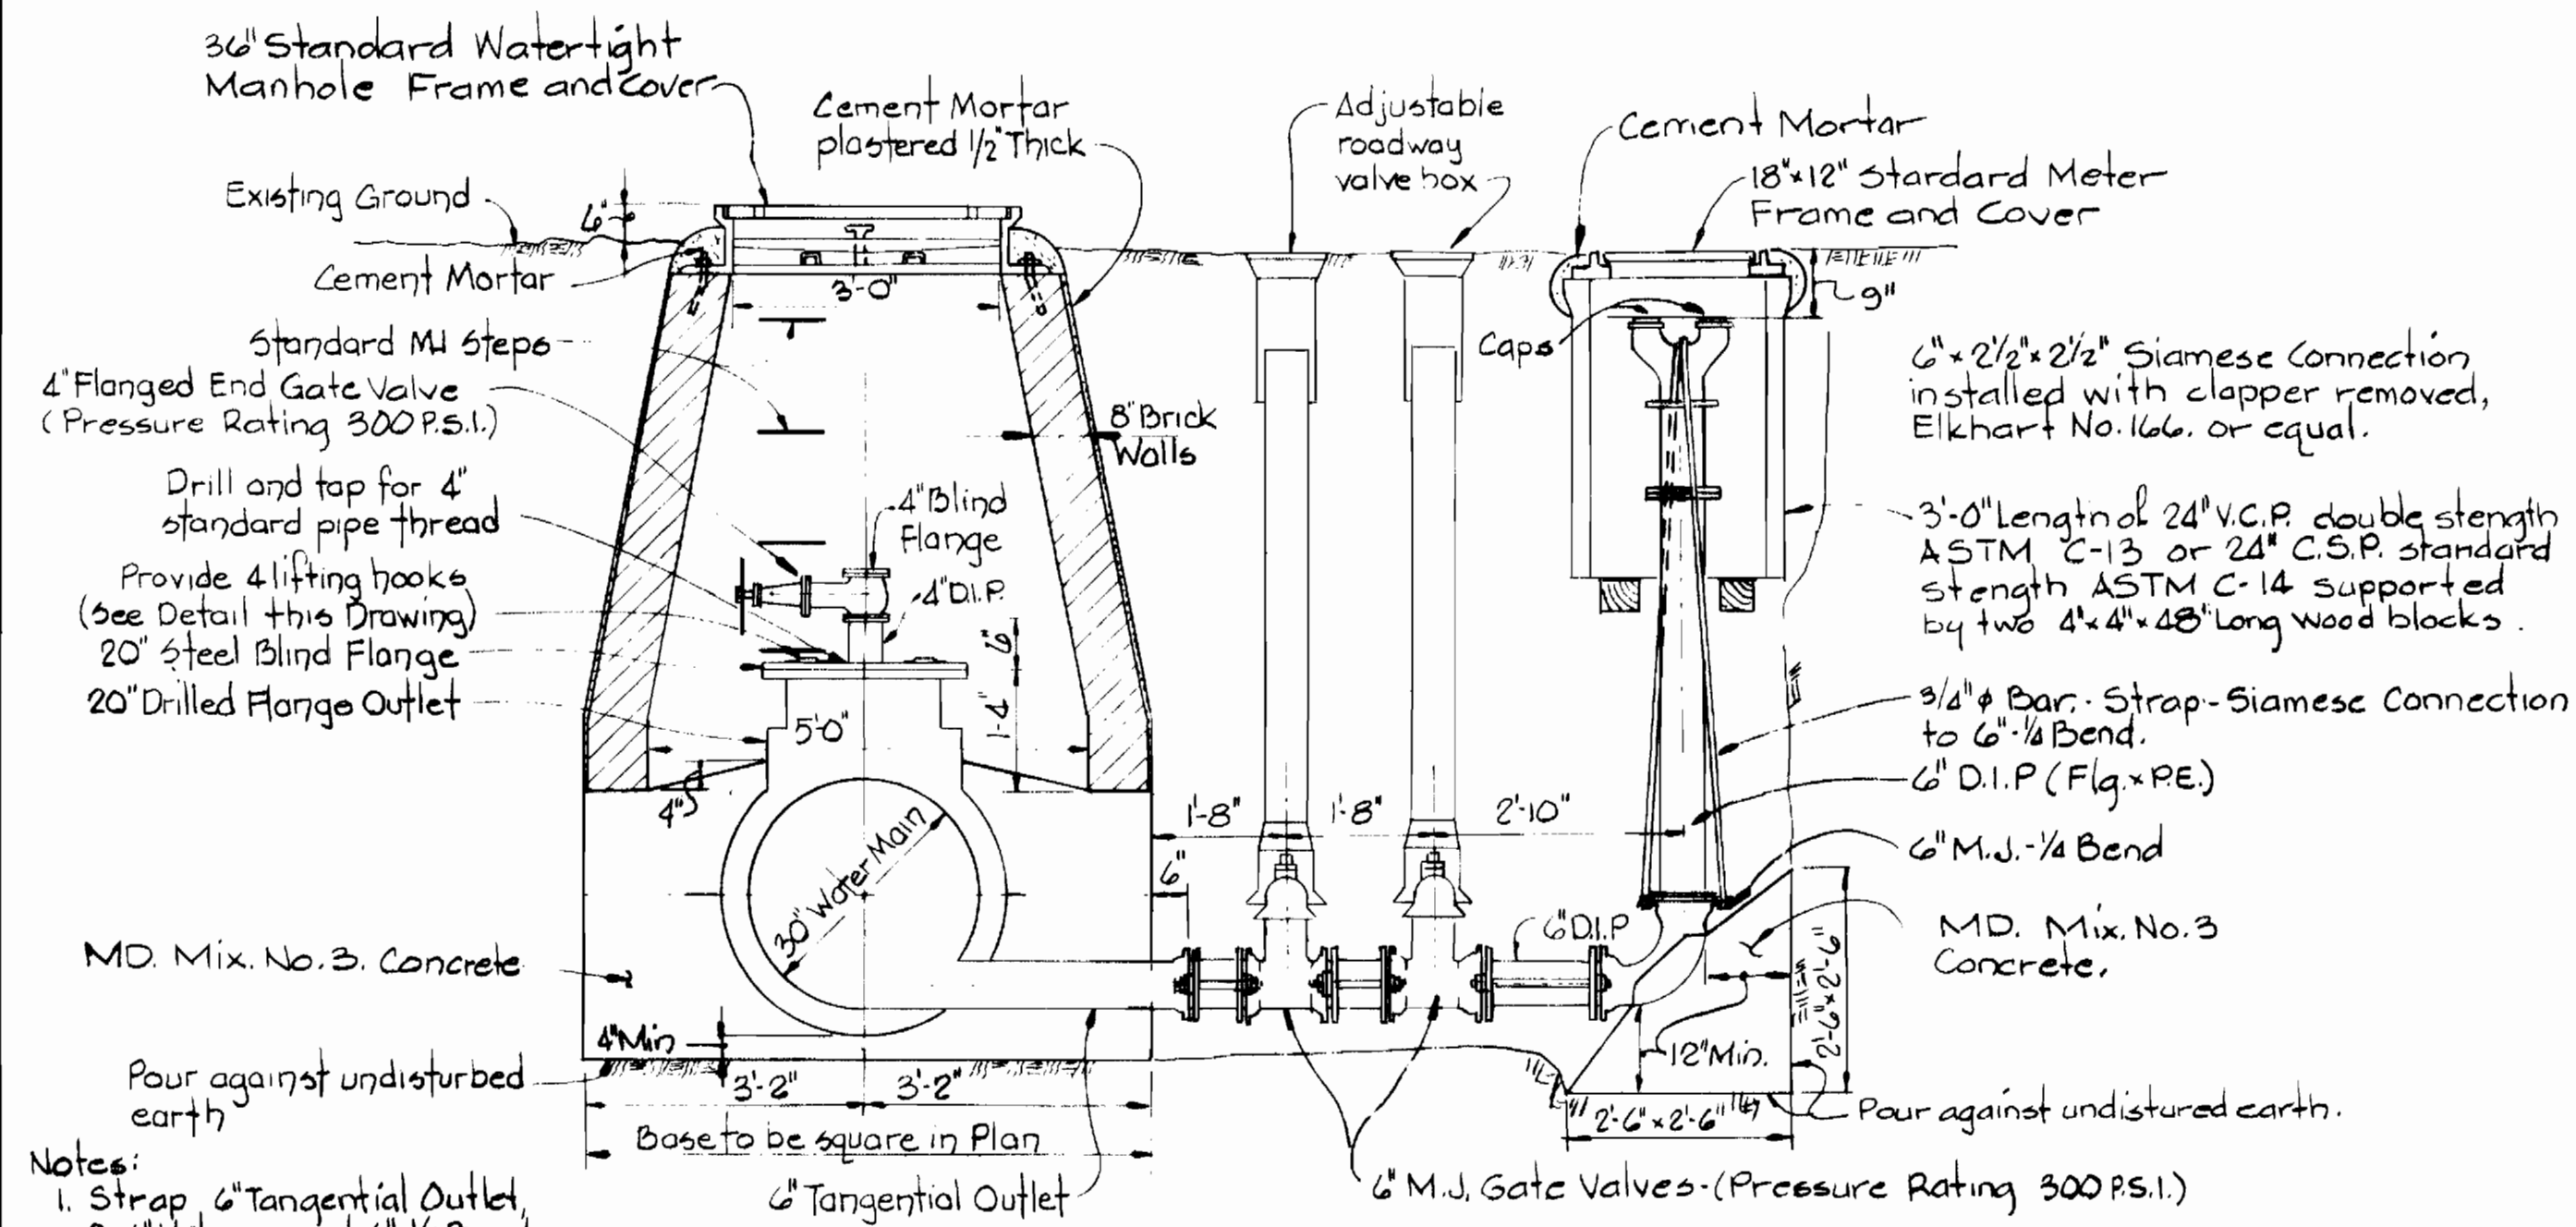 36" Standard Watertight
Manhole Frame and Cover
Cement Mortar
plastered 1/2" Thick
Adjustable
roadway
valve box
Cement Mortar
18"x12" Stardard Meter
Frame and Cover
Existing Ground
6"
Cement Mortar
3'-0"
9"
Caps
Standard MH Steps
4" Flanged End Gate Valve
(Pressure Rating 300 P.S.I.)
8" Brick
Walls
6"x 2 1/2"x 2 1/2" Siamese Connection
installed with clapper removed,
Elkhart No. 166. or equal.
Drill and tap for 4"
standard pipe thread
4" Blind
Flange
4" D.I.P.
3'-0" Length of 24" V.C.P. double stength
ASTM C-13 or 24" C.S.P. standard
stength ASTM C-14 supported
by two 4"x 4"x 48" Long wood blocks.
Provide 4 lifting hooks
(See Detail this Drawing)
20" Steel Blind Flange
20" Drilled Flange Outlet
6"
1'-4"
5'-0"
4"
3/4" φ Bar.- Strap - Siamese Connection
to 6"-1/4 Bend.
6" D.I.P (Flg. x P.E.)
6" M.J.-1/4 Bend
1'-8"
1'-8"
2'-10"
6"
30" Water Main
6" D.I.P
MD. Mix. No. 3
Concrete.
MD. Mix. No. 3. Concrete
2'-6"x 2'-6"
4" Min
12" Min.
Pour against undisturbed
earth
3'-2"
3'-2"
2'-6"x 2'-6"
Pour against undistured earth.
Base to be square in Plan
6" Tangential Outlet
6" M.J. Gate Valves-(Pressure Rating 300 P.S.I.)
Notes:
1. Strap 6" Tangential Outlet,